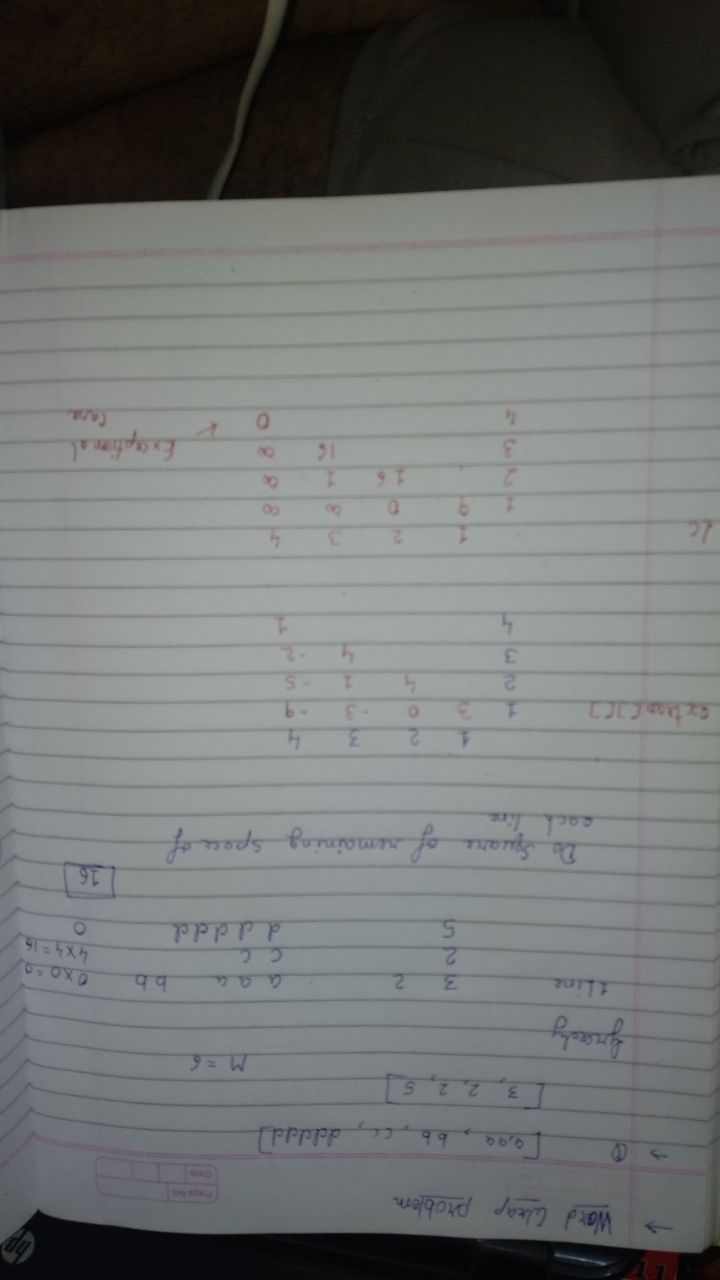 hp
→ Word Wrap problem
Page No.
Date
→ Q [a,aa , bb, cc, ddddd]
[3, 2, 2, 5]
M = 6
Greedy
1 Line 3 2 a a a bb 0x0=0
2 c c 4x4=16
5 d d d d d 0
16
Do Square of remaining space of
each line
1 2 3 4
extras[][] 1 3 0 -3 -9
2 4 1 -5
3 4 -2
4 1
lc 1 2 3 4
1 9 0 ∞ ∞
2 16 1 ∞
3 16 ∞ Exceptional
4 0 ↙ Case